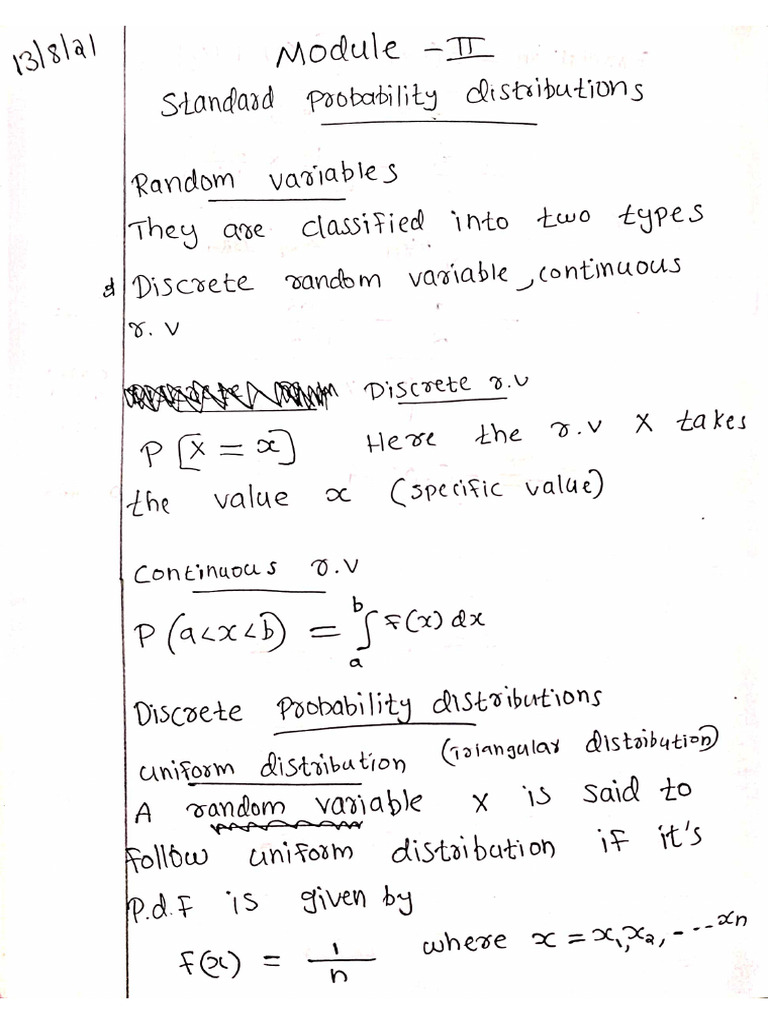 13/8/21
Module - II
Standard Probability distributions
Random variables
They are classified into two types
Discrete random variable, continuous
r.v
Discrete r.v
P[X = x] Here the r.v X takes
the value x (specific value)
Continuous r.v
P(a<x<b) = ∫ₐᵇ f(x) dx
Discrete Probability distributions
uniform distribution (Triangular distribution)
A random variable x is said to
follow uniform distribution if it's
P.d.f is given by
f(x) = 1/n where x = x₁, x₂, - --- xn